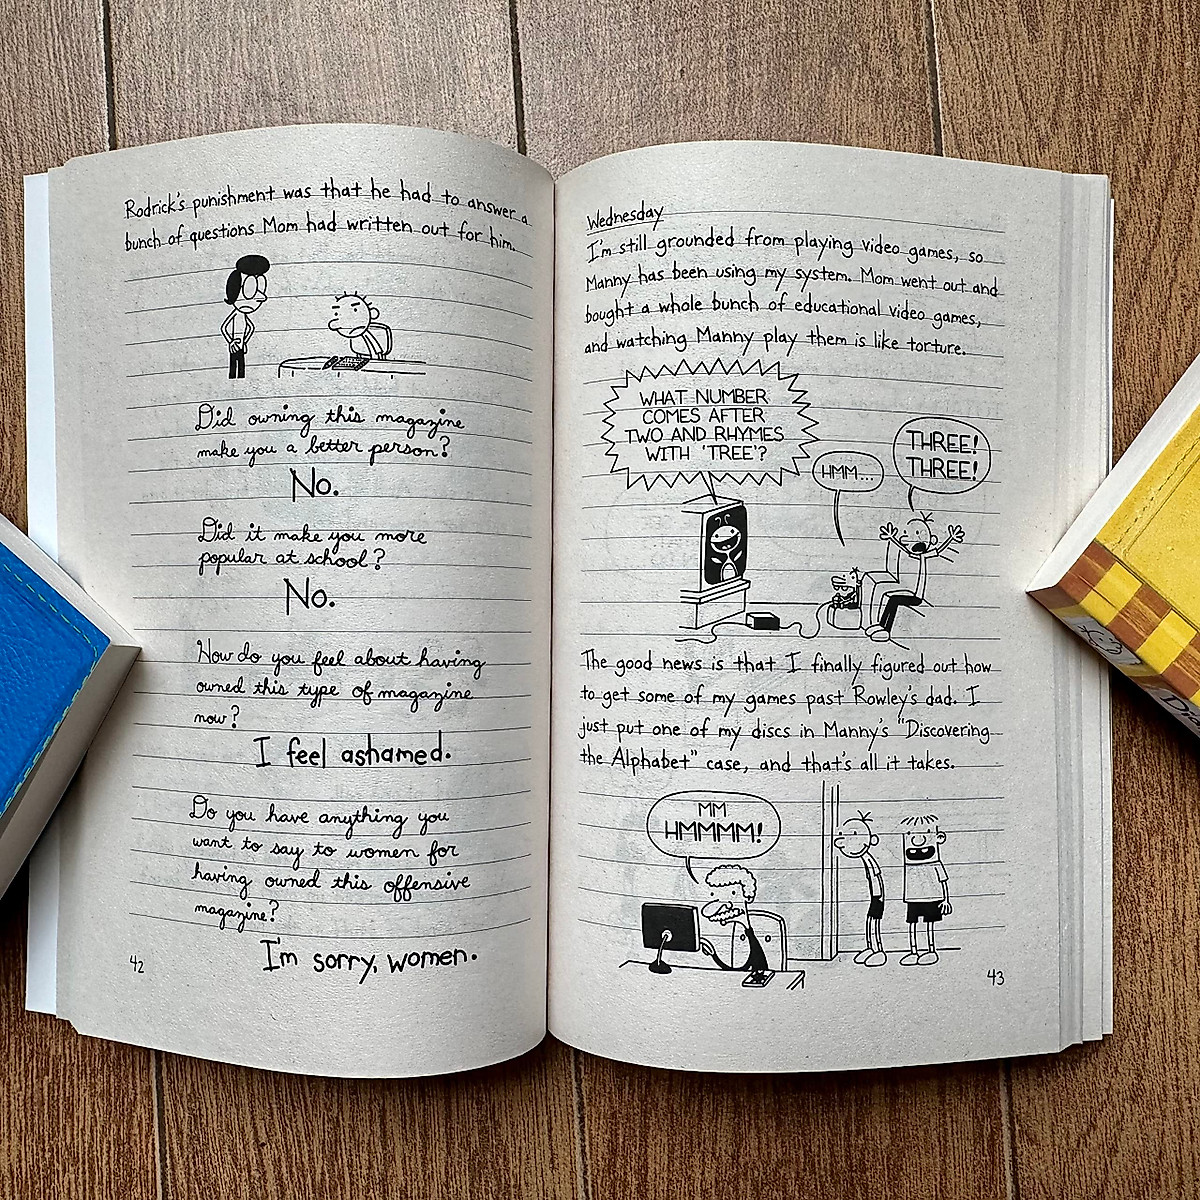 Rodrick's punishment was that he had to answer a
bunch of questions Mom had written out for him.
Did owning this magazine
make you a better person?
No.
Did it make you more
popular at school?
No.
How do you feel about having
owned this type of magazine
now?
I feel ashamed.
Do you have anything you
want to say to women for
having owned this offensive
magazine?
I'm sorry, women.
42
Wednesday
I'm still grounded from playing video games, so
Manny has been using my system. Mom went out and
bought a whole bunch of educational video games,
and watching Manny play them is like torture.
WHAT NUMBER
COMES AFTER
TWO AND RHYMES
WITH 'TREE'?
HMM...
THREE!
THREE!
The good news is that I finally figured out how
to get some of my games past Rowley's dad. I
just put one of my discs in Manny's "Discovering
the Alphabet" case, and that's all it takes.
MM
HMMMM!
43